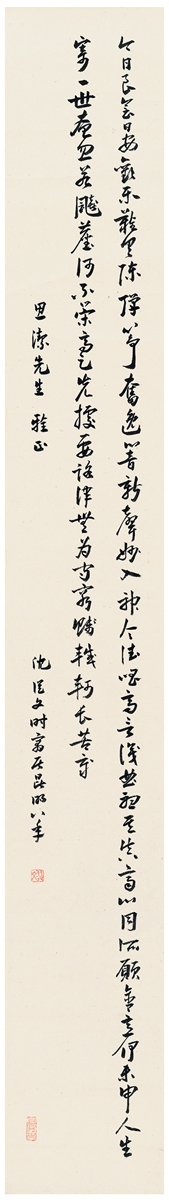 今日良宴会欢乐难具陈弹筝奋逸响新声妙入神令德唱高言识曲听其真齐心同所愿含意俱未申人生
寄一世奄忽若飙尘何不策高足先据要路津无为守穷贱轗轲长苦辛
思濂先生 雅正
沈从文时寓居昆明八年